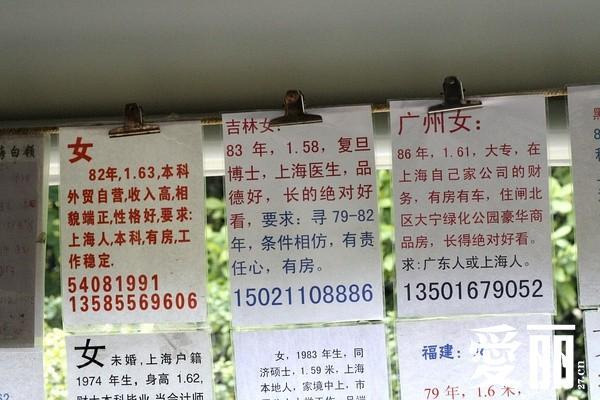 女
82年,1.63,本科
外贸自营,收入高,相
貌端正,性格好,要求:
上海人,本科,有房,工
作稳定.
54081991
13585569606
吉林女:
83 年, 1.58, 复旦
博士, 上海医生, 品
德好, 长的绝对好
看, 要求: 寻 79-82
年, 条件相仿, 有责
任心, 有房。
15021108886
广州女:
86 年, 1.61, 大专, 在
上海自己家公司的财
务, 有房有车, 住闸北
区大宁绿化公园豪华商
品房, 长得绝对好看。
求: 广东人或上海人。
13501679052
女 未婚,上海户籍
1974 年生, 身高 1.62,
女, 1983 年生, 同
济硕士, 1.59 米, 上海
本地人, 家境中上, 市
福建:
79 年, 1.6 米,
愛丽
27.cn